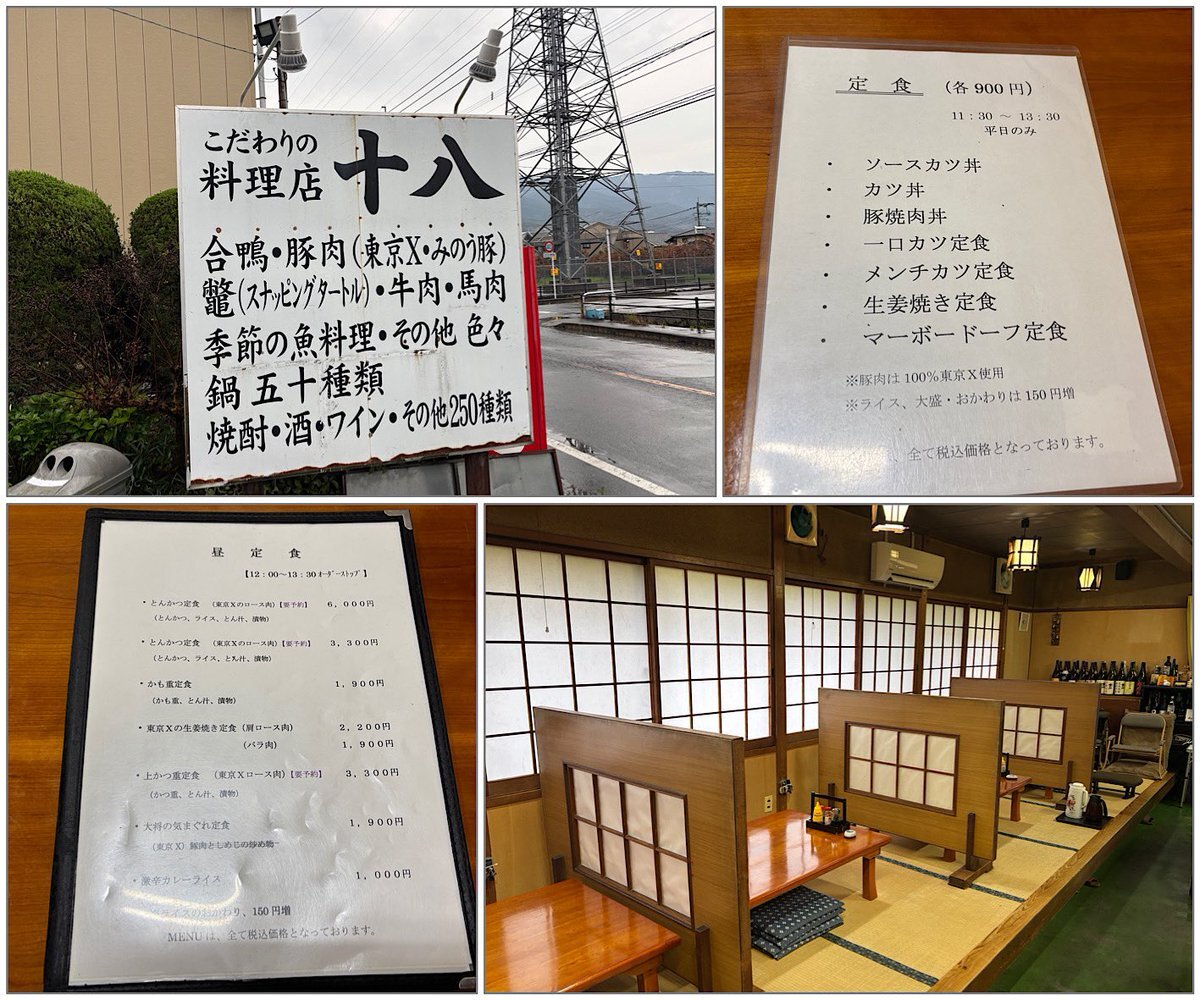 こだわりの
料理店 十八
合鴨・豚肉(東京X・みのう豚)
鼈(スナッピングタートル)・牛肉・馬肉
季節の魚料理・その他 色々
鍋 五十種類
焼酎・酒・ワイン・その他250種類
定 食 (各900円)
11:30 ~ 13:30
平日のみ
・ ソースカツ丼
・ カツ丼
・ 豚焼肉丼
・ 一口カツ定食
・ メンチカツ定食
・ 生姜焼き定食
・ マーボードーフ定食
※豚肉は100%東京X使用
※ライス、大盛・おかわりは150円増
全て税込価格となっております。
昼 定 食
【12:00~13:30オーダーストップ】
・とんかつ定食 (東京Xのロース肉)【要予約】 6,000円
(とんかつ、ライス、とん汁、漬物)
・とんかつ定食 (東京Xのロース肉)【要予約】 3,300円
(とんかつ、ライス、とん汁、漬物)
・かも重定食 1,900円
(かも重、とん汁、漬物)
・東京Xの生姜焼き定食(肩ロース肉) 2,200円
(バラ肉) 1,900円
・上かつ重定食 (東京Xロース肉)【要予約】 3,300円
(かつ重、とん汁、漬物)
・大将の気まぐれ定食 1,900円
(東京X) 豚肉としめじの炒め物
・激辛カレーライス 1,000円
ライスのおかわり、150円増
MENUは、全て税込価格となっております。